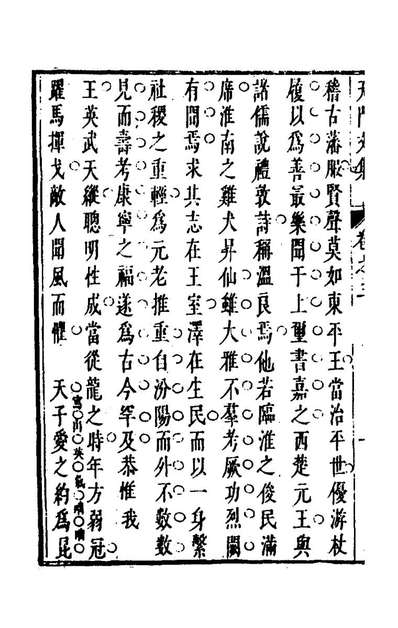 稽古藩服賢聲莫如東平王當治平世優游杖
履以為善最樂聞于上璽書嘉之西楚元王與
諸儒說禮敦詩稱溫良焉他若臨淮之俊民滿
席淮南之雞犬昇仙雖大雅不羣考厥功烈闕
有間焉求其志在王室澤在生民而以一身繫
社稷之重輕為元老推重自汾陽而外不數數
見而壽考康寧之福遂為古今罕及恭惟我
王英武天縱聰明性成當從龍之時年方弱冠
寫出英氣
躍馬揮戈敵人聞風而懼 天子愛之約為昆